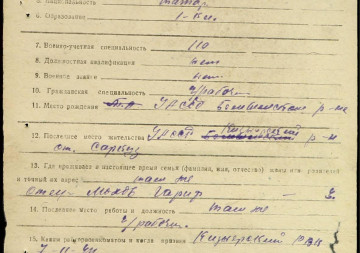 5. Национальность татар.
6. Образование 1-кл.
7. Военно-учетная специальность 110
8. Должностная квалификация нет
9. Военное звание нет
10. Гражданская специальность ч/рабоч.
11. Место рождения УАССР р-на
12. Последнее место жительства УАССР Кизнерский р-н
ст. Саркуз
13. Где проживает в настоящее время семья (фамилия, имя, отчество) жены или родителей
и точный их адрес там же
отец
14. Последнее место работы и должность там же
ч/рабоч.
15. Каким райвоенкоматом и числа призван Кизнерский РВК